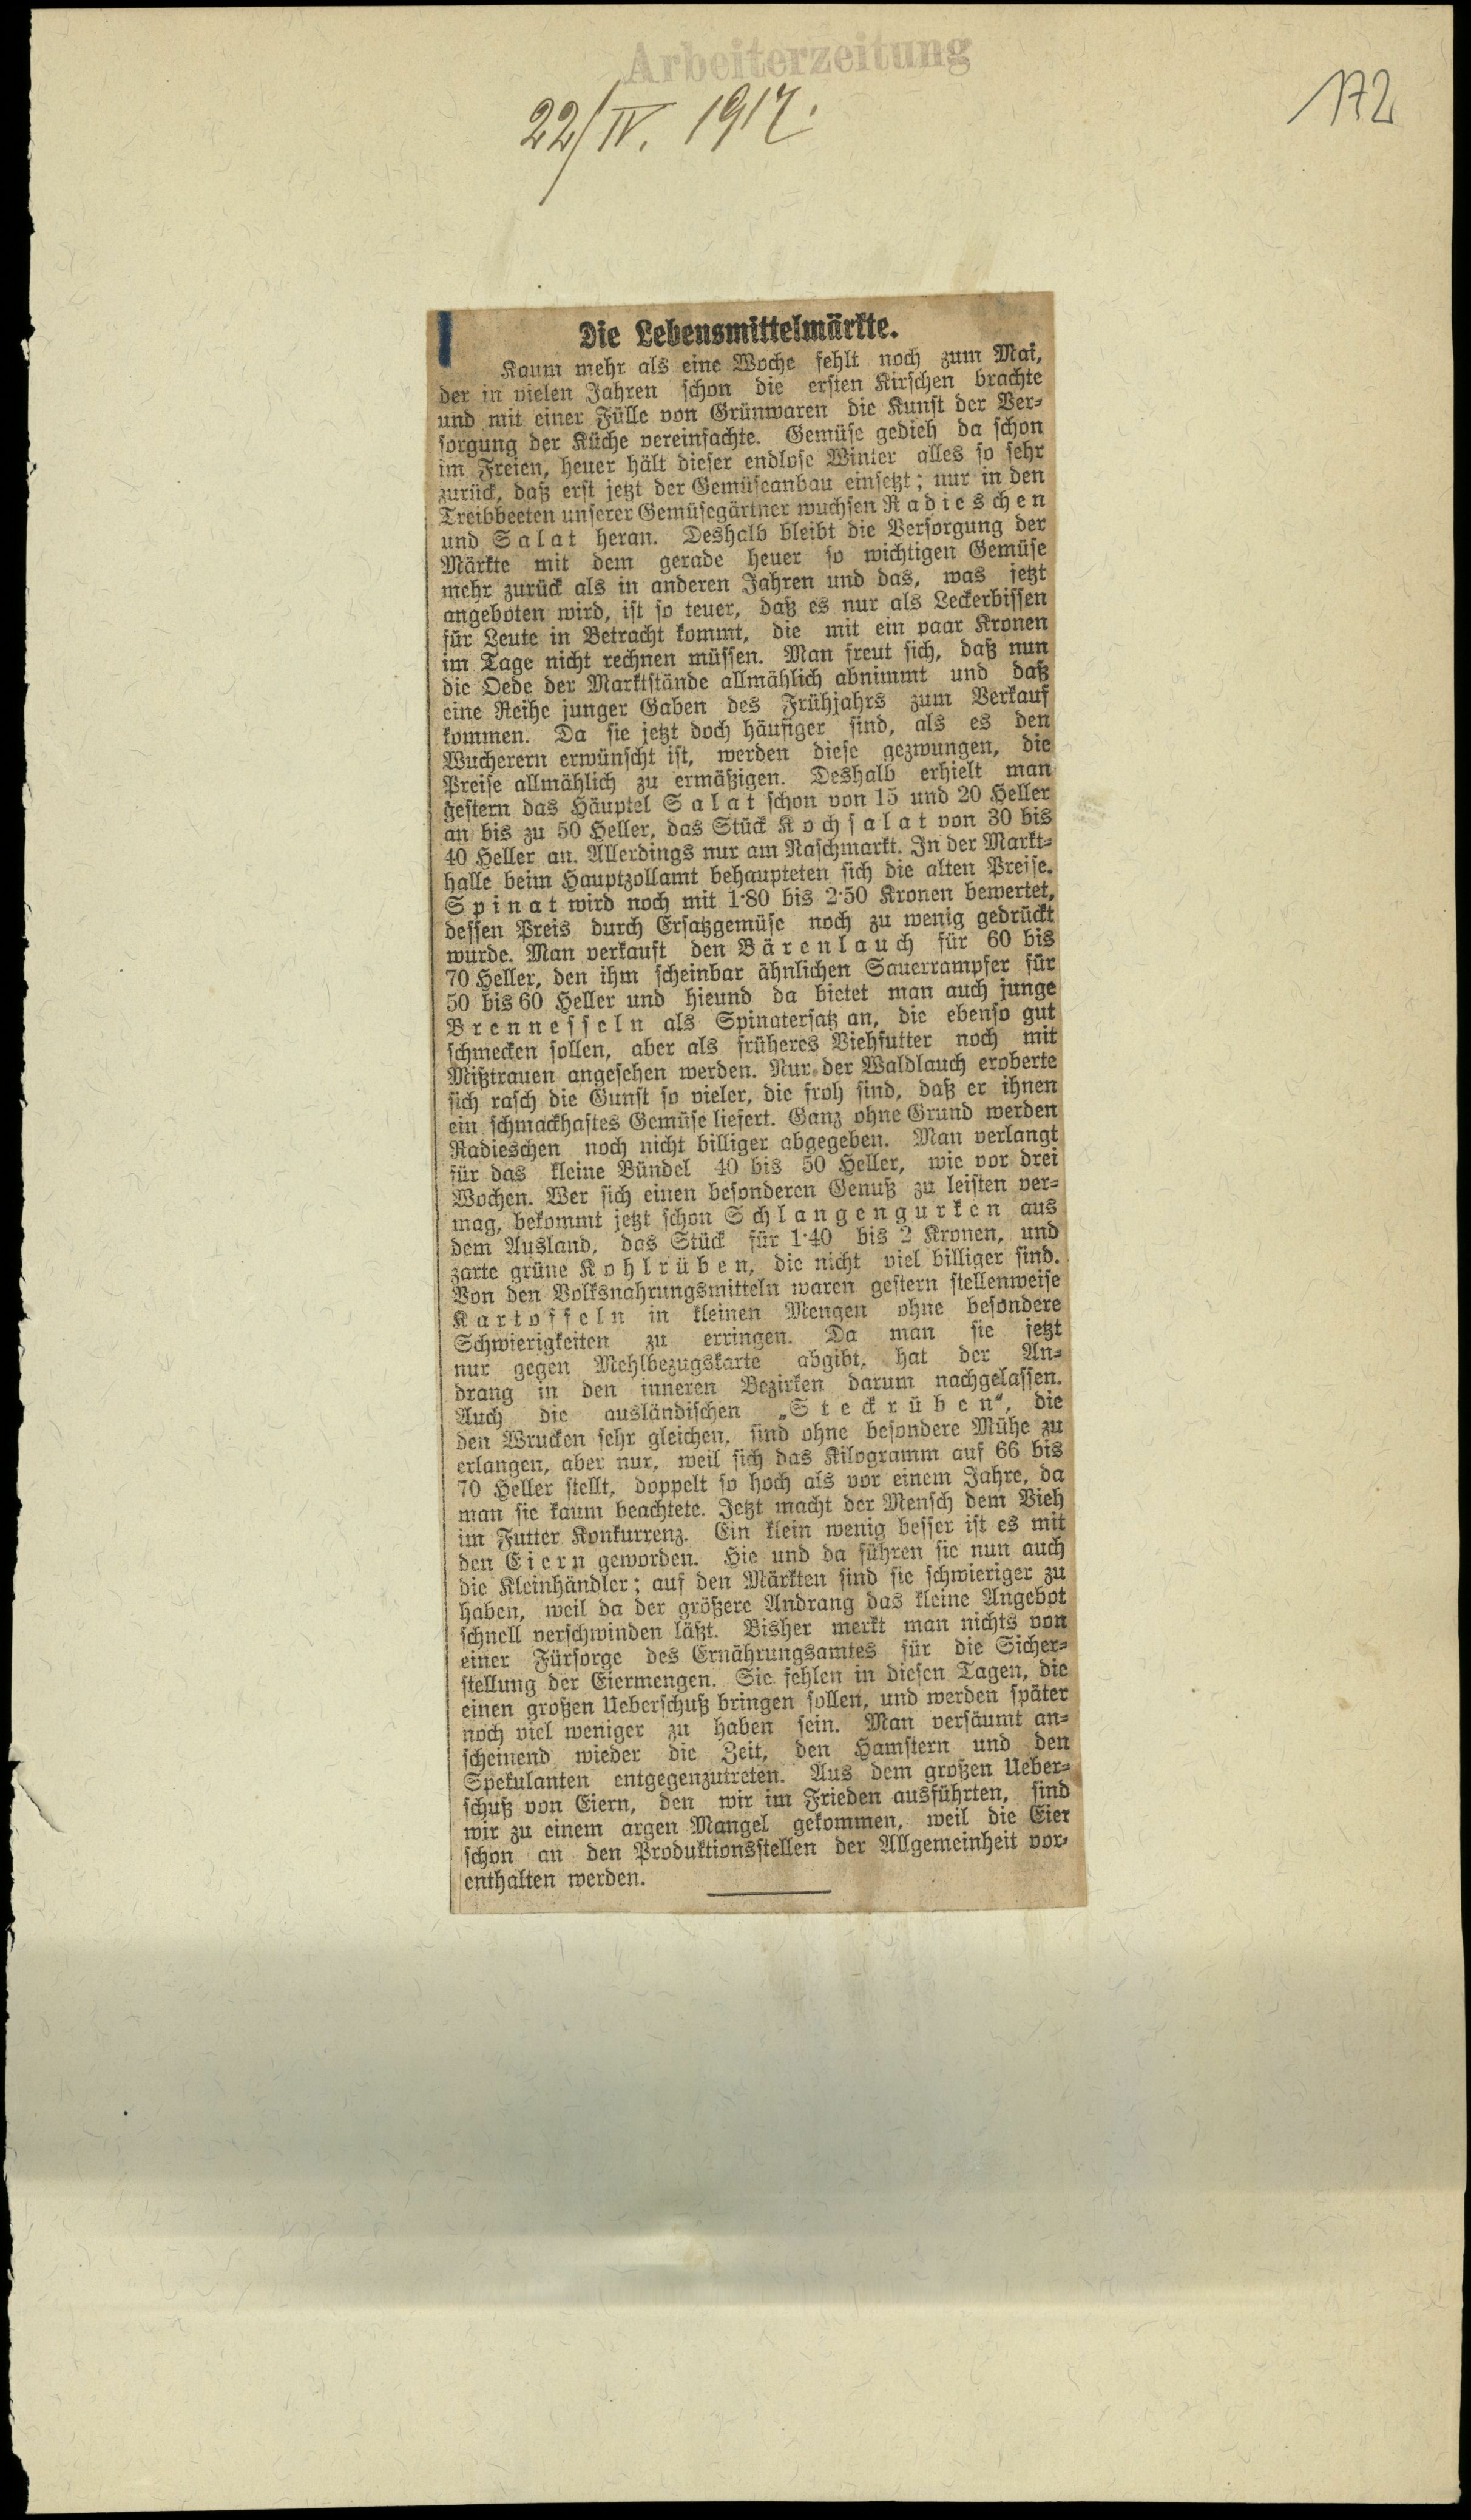 Arbeiterzeitung
22/IV. 1917.
172
Die Lebensmittelmärkte.
Kaum mehr als eine Woche fehlt noch zum Mai,
der in vielen Jahren schon die ersten Kirschen brachte
und mit einer Fülle von Grünwaren die Kunst der Ver-
sorgung der Küche vereinfachte. Gemüse gedieh da schon
im Freien, heuer hält dieser endlose Winter alles so sehr
zurück, daß erst jetzt der Gemüseanbau einsetzt; nur in den
Treibbeeten unserer Gemüsegärtner wuchsen Radieschen
und Salat heran. Deshalb bleibt die Versorgung der
Märkte mit dem gerade heuer so wichtigen Gemüse
mehr zurück als in anderen Jahren und das, was jetzt
angeboten wird, ist so teuer, daß es nur als Leckerbissen
für Leute in Betracht kommt, die mit ein paar Kronen
im Tage nicht rechnen müssen. Man freut sich, daß nun
die Oede der Marktstände allmählich abnimmt und daß
eine Reihe junger Gaben des Frühjahrs zum Verkauf
kommen. Da sie jetzt doch häufiger sind, als es den
Wucherern erwünscht ist, werden diese gezwungen, die
Preise allmählich zu ermäßigen. Deshalb erhielt man
gestern das Häuptel Salat schon von 15 und 20 Heller
an bis zu 50 Heller, das Stück Kochsalat von 30 bis
40 Heller an. Allerdings nur am Naschmarkt. In der Markt-
halle beim Hauptzollamt behaupteten sich die alten Preise.
Spinat wird noch mit 1·80 bis 2·50 Kronen bewertet,
dessen Preis durch Ersatzgemüse noch zu wenig gedrückt
wurde. Man verkauft den Bärenlauch für 60 bis
70 Heller, den ihm scheinbar ähnlichen Sauerrampfer für
50 bis 60 Heller und hieund da bietet man auch junge
Brennesseln als Spinatersatz an, die ebenso gut
schmecken sollen, aber als früheres Viehfutter noch mit
Mißtrauen angesehen werden. Nur der Waldlauch eroberte
sich rasch die Gunst so vieler, die froh sind, daß er ihnen
ein schmackhaftes Gemüse liefert. Ganz ohne Grund werden
Radieschen noch nicht billiger abgegeben. Man verlangt
für das kleine Bündel 40 bis 50 Heller, wie vor drei
Wochen. Wer sich einen besonderen Genuß zu leisten ver-
mag, bekommt jetzt schon Schlangengurken aus
dem Ausland, das Stück für 1·40 bis 2 Kronen, und
zarte grüne Kohlrüben, die nicht viel billiger sind.
Von den Volksnahrungsmitteln waren gestern stellenweise
Kartoffeln in kleinen Mengen ohne besondere
Schwierigkeiten zu erringen. Da man sie jetzt
nur gegen Mehlbezugskarte abgibt, hat der An-
drang in den inneren Bezirken darum nachgelassen.
Auch die ausländischen „Steckrüben“, die
den Wrucken sehr gleichen, sind ohne besondere Mühe zu
erlangen, aber nur, weil sich das Kilogramm auf 66 bis
70 Heller stellt, doppelt so hoch als vor einem Jahre, da
man sie kaum beachtete. Jetzt macht der Mensch dem Vieh
im Futter Konkurrenz. Ein klein wenig besser ist es mit
den Eiern geworden. Hie und da führen sie nun auch
die Kleinhändler; auf den Märkten sind sie schwieriger zu
haben, weil da der größere Andrang das kleine Angebot
schnell verschwinden läßt. Bisher merkt man nichts von
einer Fürsorge des Ernährungsamtes für die Sicher-
stellung der Eiermengen. Sie fehlen in diesen Tagen, die
einen großen Ueberschuß bringen sollen, und werden später
noch viel weniger zu haben sein. Man versäumt an-
scheinend wieder die Zeit, den Hamstern und den
Spekulanten entgegenzutreten. Aus dem großen Ueber-
schuß von Eiern, den wir im Frieden ausführten, sind
wir zu einem argen Mangel gekommen, weil die Eier
schon an den Produktionsstellen der Allgemeinheit vor-
enthalten werden.